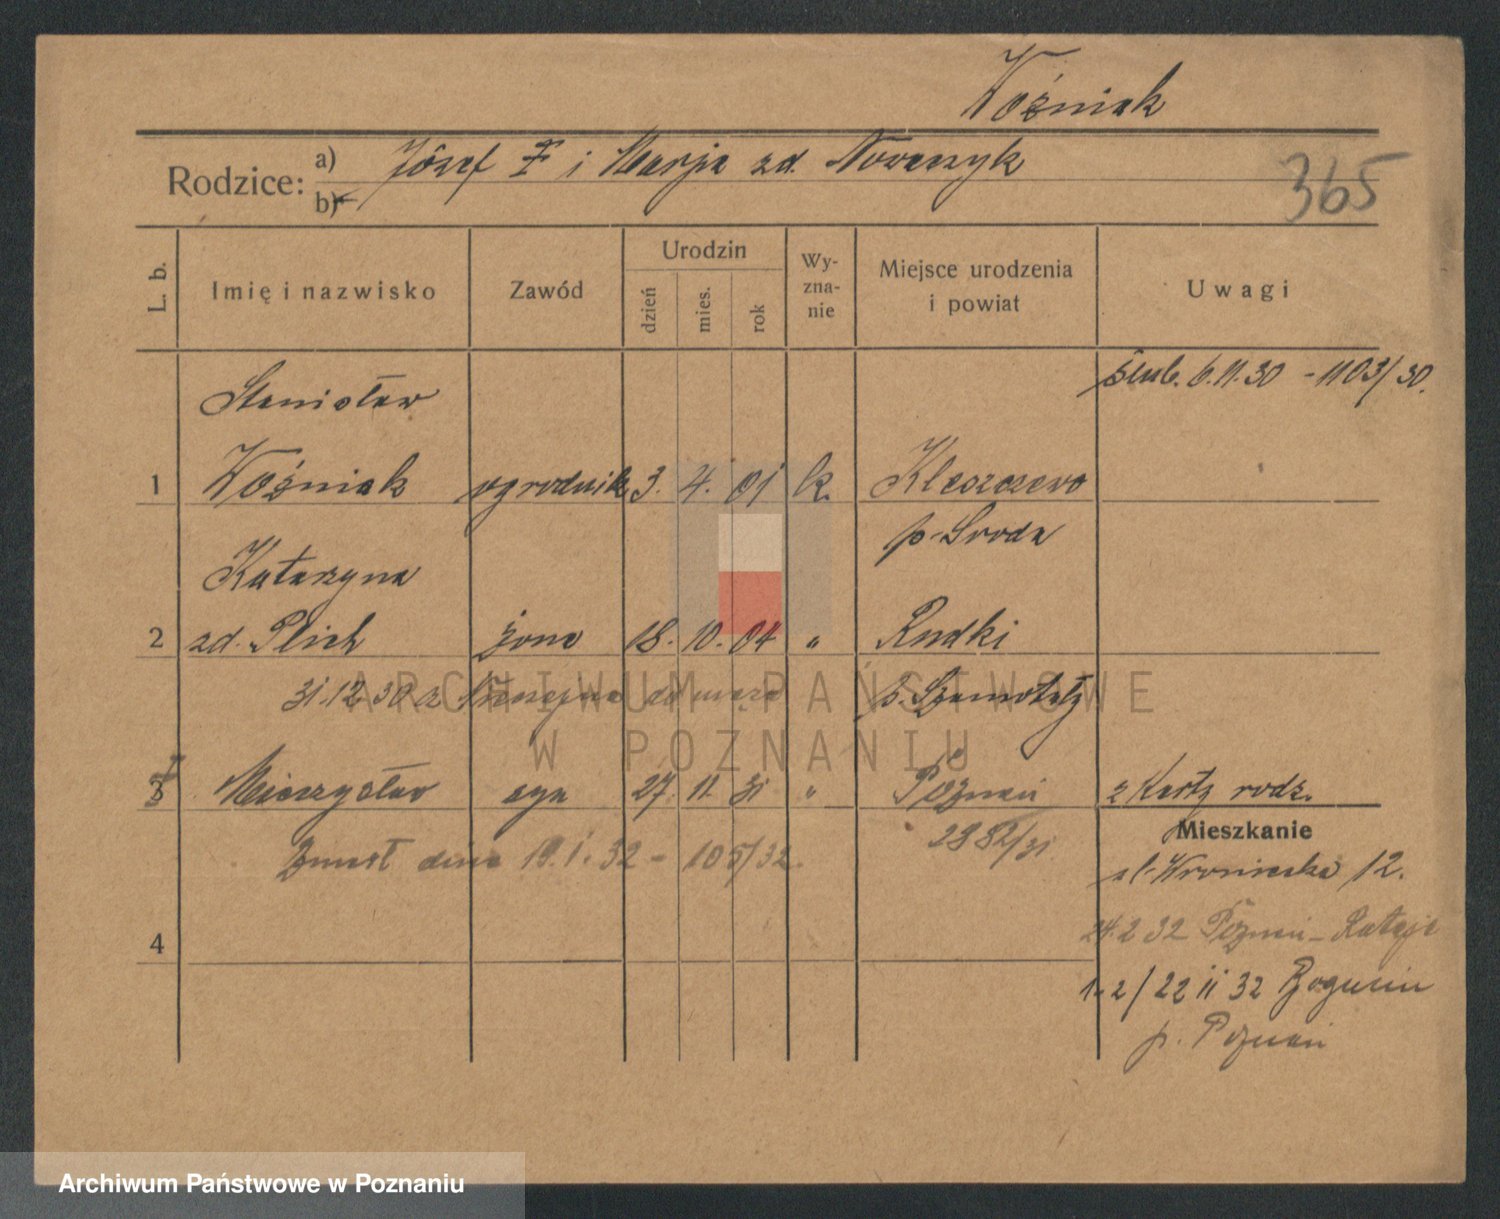 Woźniak
Rodzice: a) Józef i Marja zd. Nowaczyk
b)
365
L. b.
Imię i nazwisko
Zawód
Urodzin
dzień
mies.
rok
Wy-
zna-
nie
Miejsce urodzenia
i powiat
Uwagi
ślub. 6.11.30 - 1103/30.
Stanisław
1 Woźniak ogrodnik 3. 4. 01 k. Kleszczewo
p. Środa
Katarzyna
2 zd. Plich żona 18. 10. 04 " Rudki
31.12.30 z do męża p. Szamotuły
3 Mieczysław syn 27. 11 31 " Poznań z Karty rodz.
2882/31
Zmarł dnia 19.1.32 - 105/32.
Mieszkanie
ul. Wroniecka 12.
24.2 32 Poznań - Rataje
4
1-2/22 11 32 Bogucin
p. Poznań
ARCHIWUM PAŃSTWOWE
W POZNANIU
Archiwum Państwowe w Poznaniu